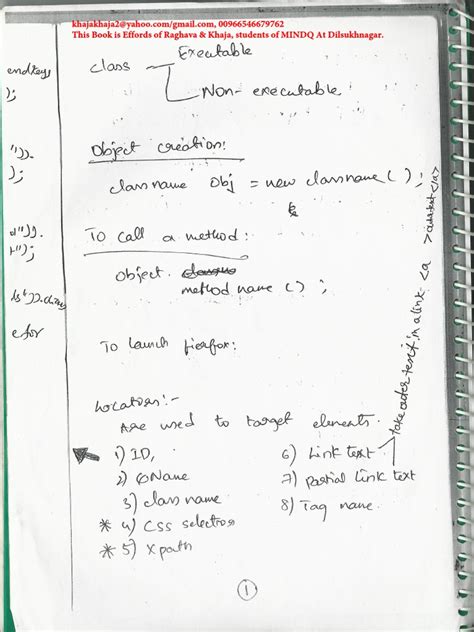 khajakhaja2@yahoo.com/gmail.com, 00966546679762
This Book is Effords of Raghava & Khaja, students of MINDQ At Dilsukhnagar.
Executable
class
Non-executable
Object creation:
classname obj = new classname ( ) ;
To call a method:
object.
method name ( ) ;
To launch fierfox:
Locators:-
Are used to target elements.
1) ID,
2) Name
3) class name
* 4) CSS selectors
* 5) Xpath
6) Link text
7) partial Link text
8) Tag name
take outer text in a link <a > outertext </a>
1